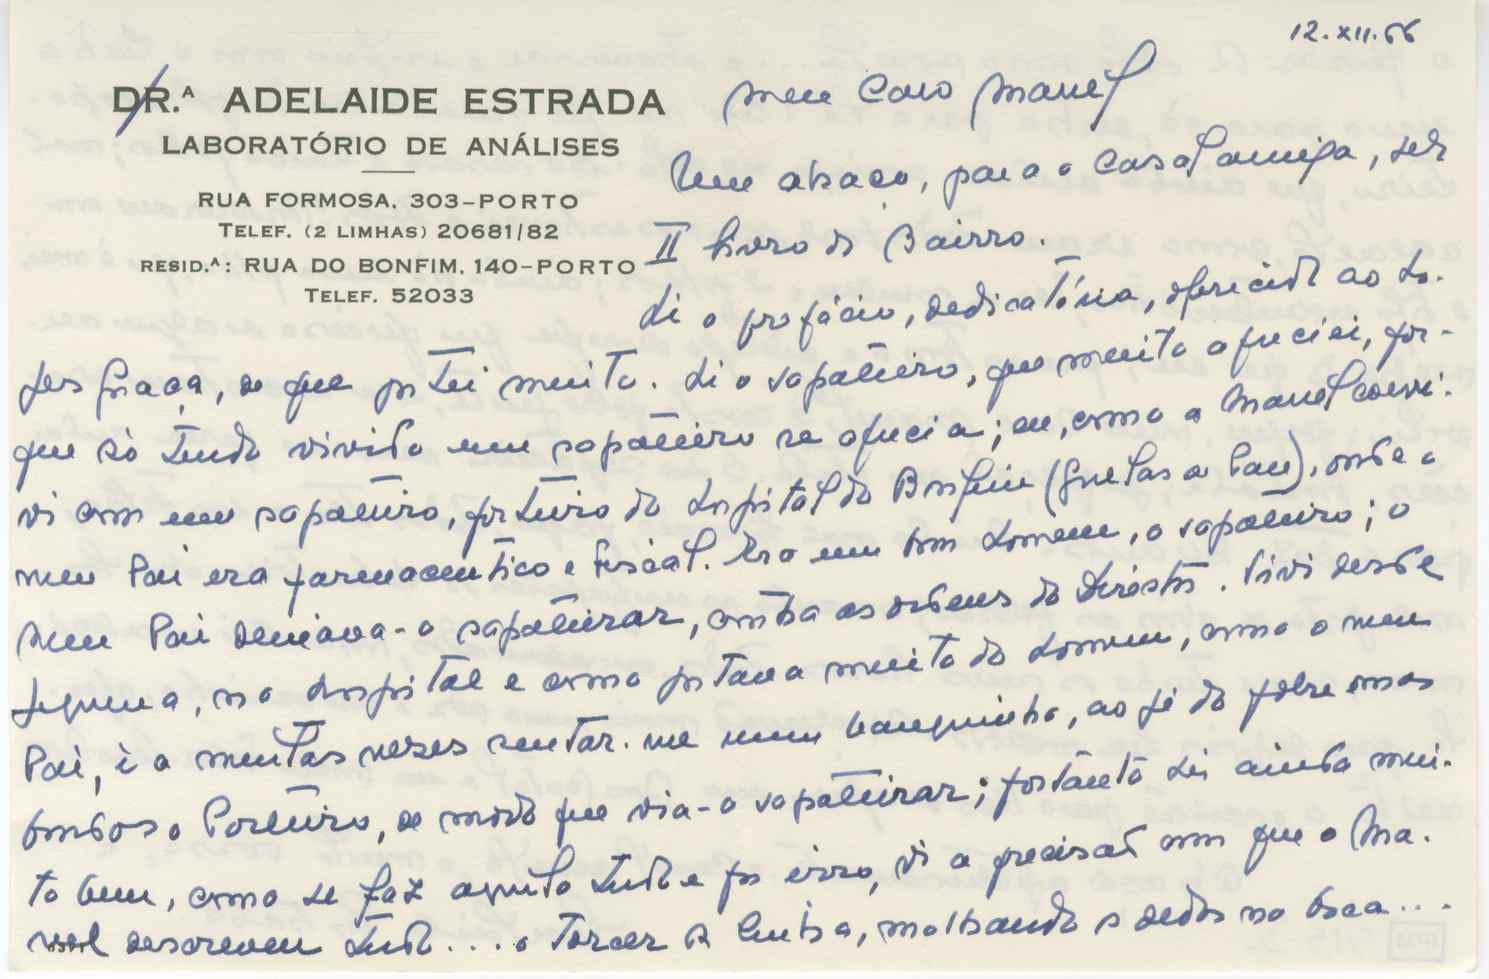 12.XII.66
DR.ᴬ ADELAIDE ESTRADA
LABORATÓRIO DE ANÁLISES
RUA FORMOSA, 303-PORTO
TELEF. (2 LIMHAS) 20681/82
RESID.ᴬ: RUA DO BONFIM, 140-PORTO
TELEF. 52033
Meu Caro Manel
Um abraço, para o Casal amigo,
II livro do Bairro.
Li o prefácio, dedicatória, oferecida ao Lo-
pes Graça, de que gostei muito. Li o sapateiro, que muito apreciei, por-
que só tendo vivido um sapateiro se aprecia; eu, como o Manel convi-
vi com um sapateiro, porteiro do Hospital do Bonfim (Goelas de Pau), onde o
meu Pai era farmaceutico e fiscal. Era um bom homem, o sapateiro; o
meu Pai deixava-o sapateirar, contra as ordens do Director. Vivi desde
pequena, no hospital e como gostava muito do homem, como o meu
Pai, ia muitas vezes sentar-me num banquinho, ao pé do pobre mas
bondoso Porteiro, de modo que via-o sapateirar; portanto sei ainda mui-
to bem, como se faz aquilo tudo e por isso, vi a precisão com que o Ma-
nel descreveu tudo.... o torcer a linha, molhando os dedos na boca...